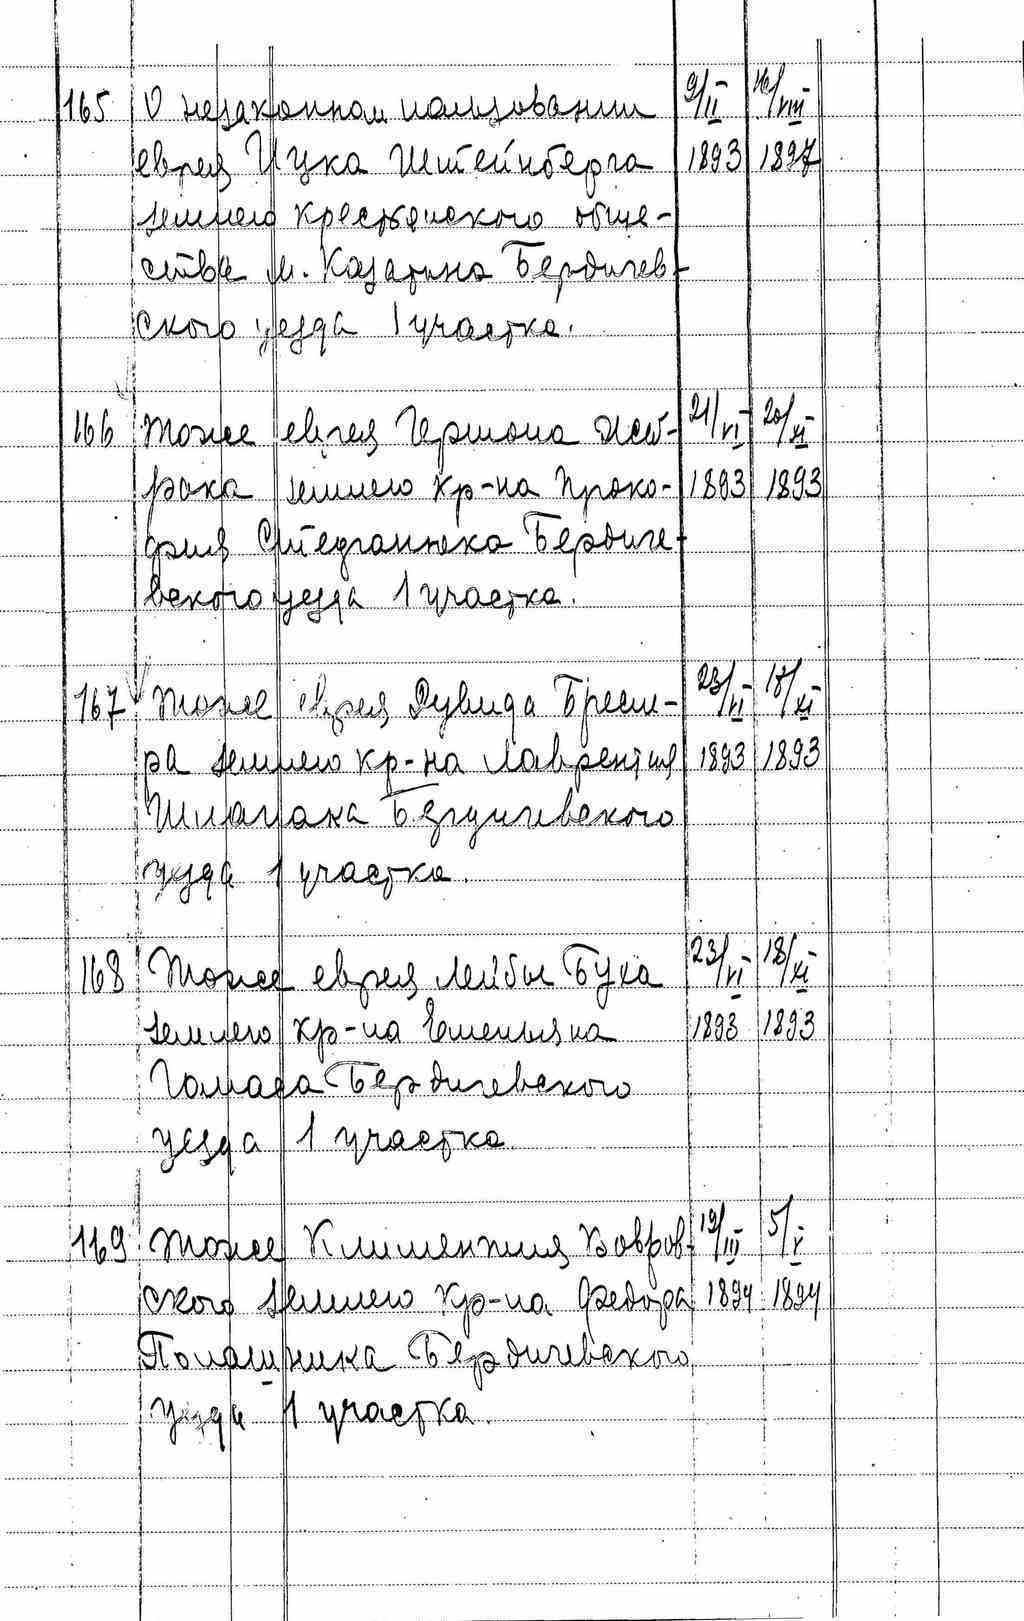 165 О незаконном пользовании 9/II 16/VIII
еврея Ицка Штейнберга 1893 1897
землею крестьянского обще-
ства м. Казатина Бердичев-
ского уезда 1 участка.
166 Тоже еврея Гершона 21/VI 20/XI
землею кр-на Проко- 1893 1893
фия Стефанюка Бердиче-
вского уезда 1 участка.
167 Тоже еврея Дувида Бресле- 23/VI 18/XI
ра землею кр-на Лаврентия 1893 1893
Бердичевского
уезда 1 участка.
168 Тоже еврея Лейбы Бука 23/VI 18/XI
землею кр-на Емельяна 1893 1893
Бердичевского
уезда 1 участка
169 Тоже Климентия Бобров- 19/III 5/V
ского землею кр-на Федора 1894 1894
Бердичевского
уезда 1 участка.